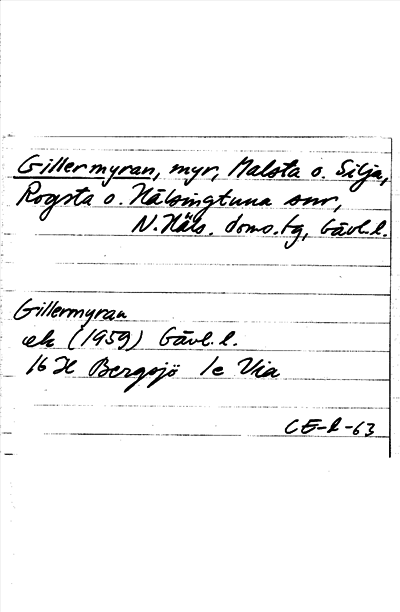 Gillermyran, myr, Malsta o. Silja,
Rogsta o. Hälsingtuna snr,
N. Häls. doms.tg, Gävl.l.
Gillermyran
ek (1959) Gävl.l.
16 H Bergsjö 1e Via
CE-l-63